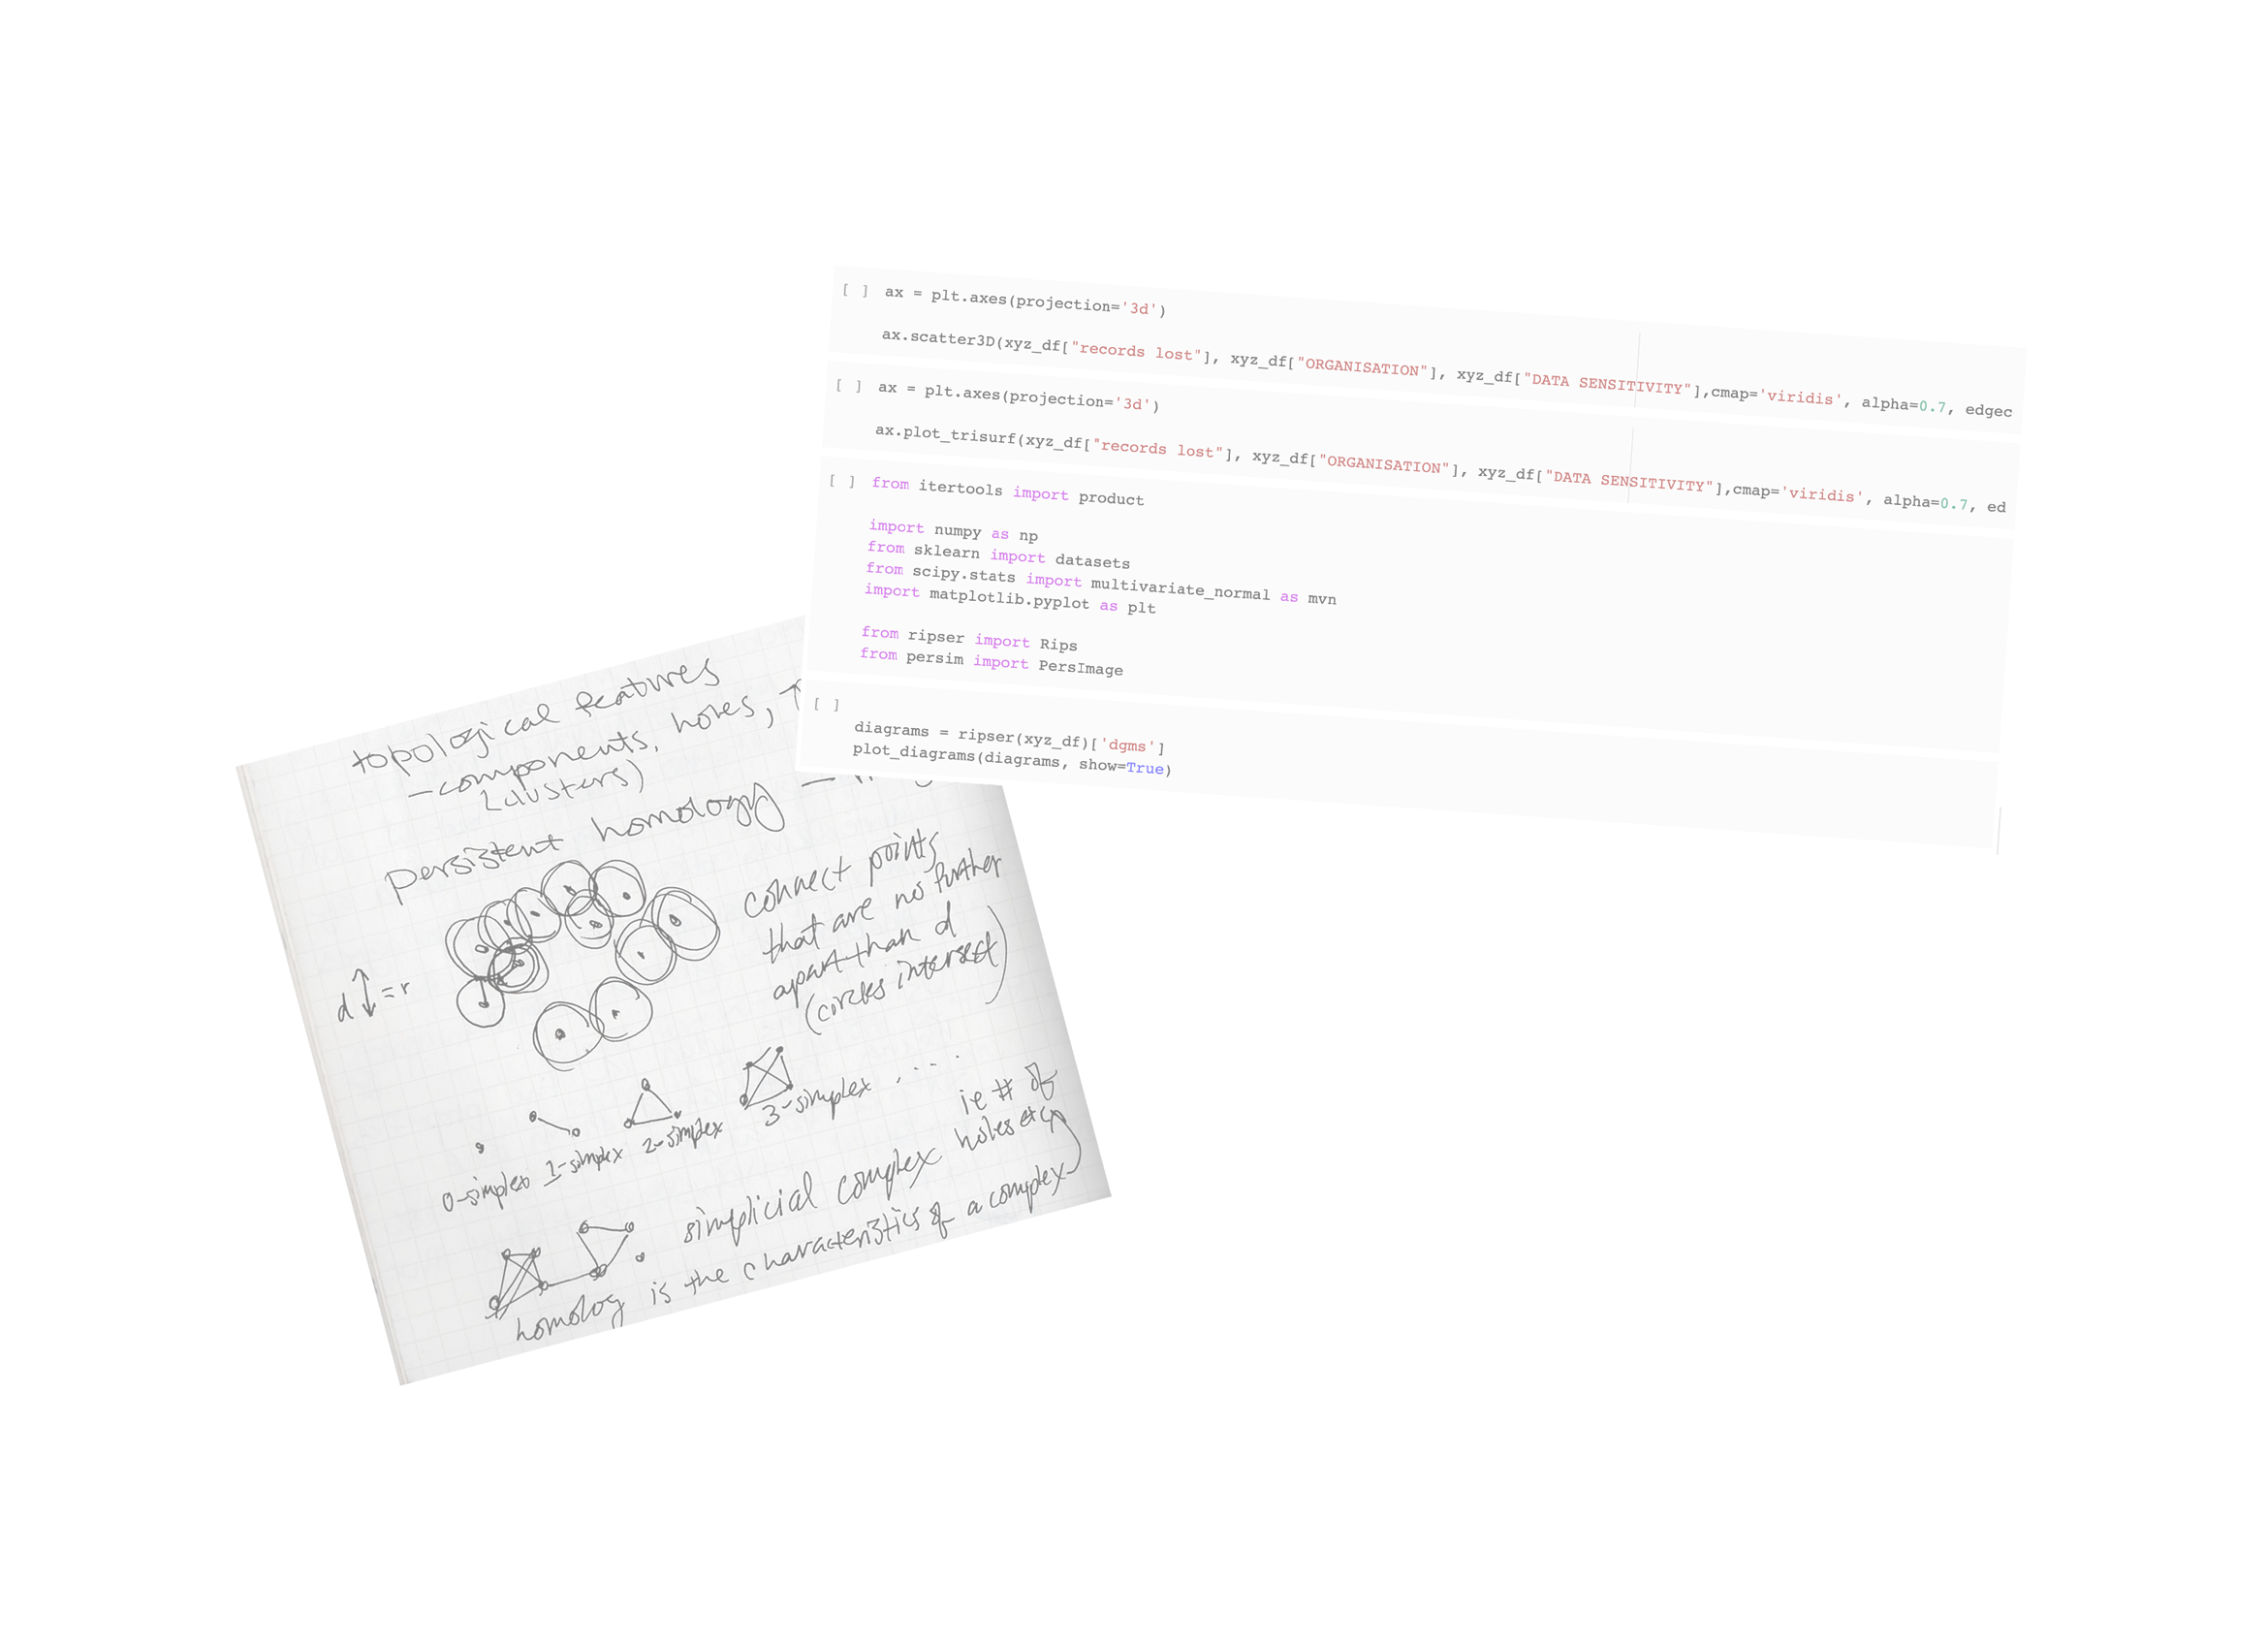 [ ] ax = plt.axes(projection='3d')
ax.scatter3D(xyz_df["records lost"], xyz_df["ORGANISATION"], xyz_df["DATA SENSITIVITY"],cmap='viridis', alpha=0.7, edgec
[ ] ax = plt.axes(projection='3d')
ax.plot_trisurf(xyz_df["records lost"], xyz_df["ORGANISATION"], xyz_df["DATA SENSITIVITY"],cmap='viridis', alpha=0.7, ed
[ ] from itertools import product
import numpy as np
from sklearn import datasets
from scipy.stats import multivariate_normal as mvn
import matplotlib.pyplot as plt
from ripser import Rips
from persim import PersImage
[ ]
diagrams = ripser(xyz_df)['dgms']
plot_diagrams(diagrams, show=True)
topological features
- components, holes,
(clusters)
persistent homology -
connect points
that are no further
apart than d
(circles intersect)
d ↕ = r
0-simplex 1-simplex 2-simplex 3-simplex ....
simplicial complex
ie # of
holes etc)
homolog is the characteristics of a complex